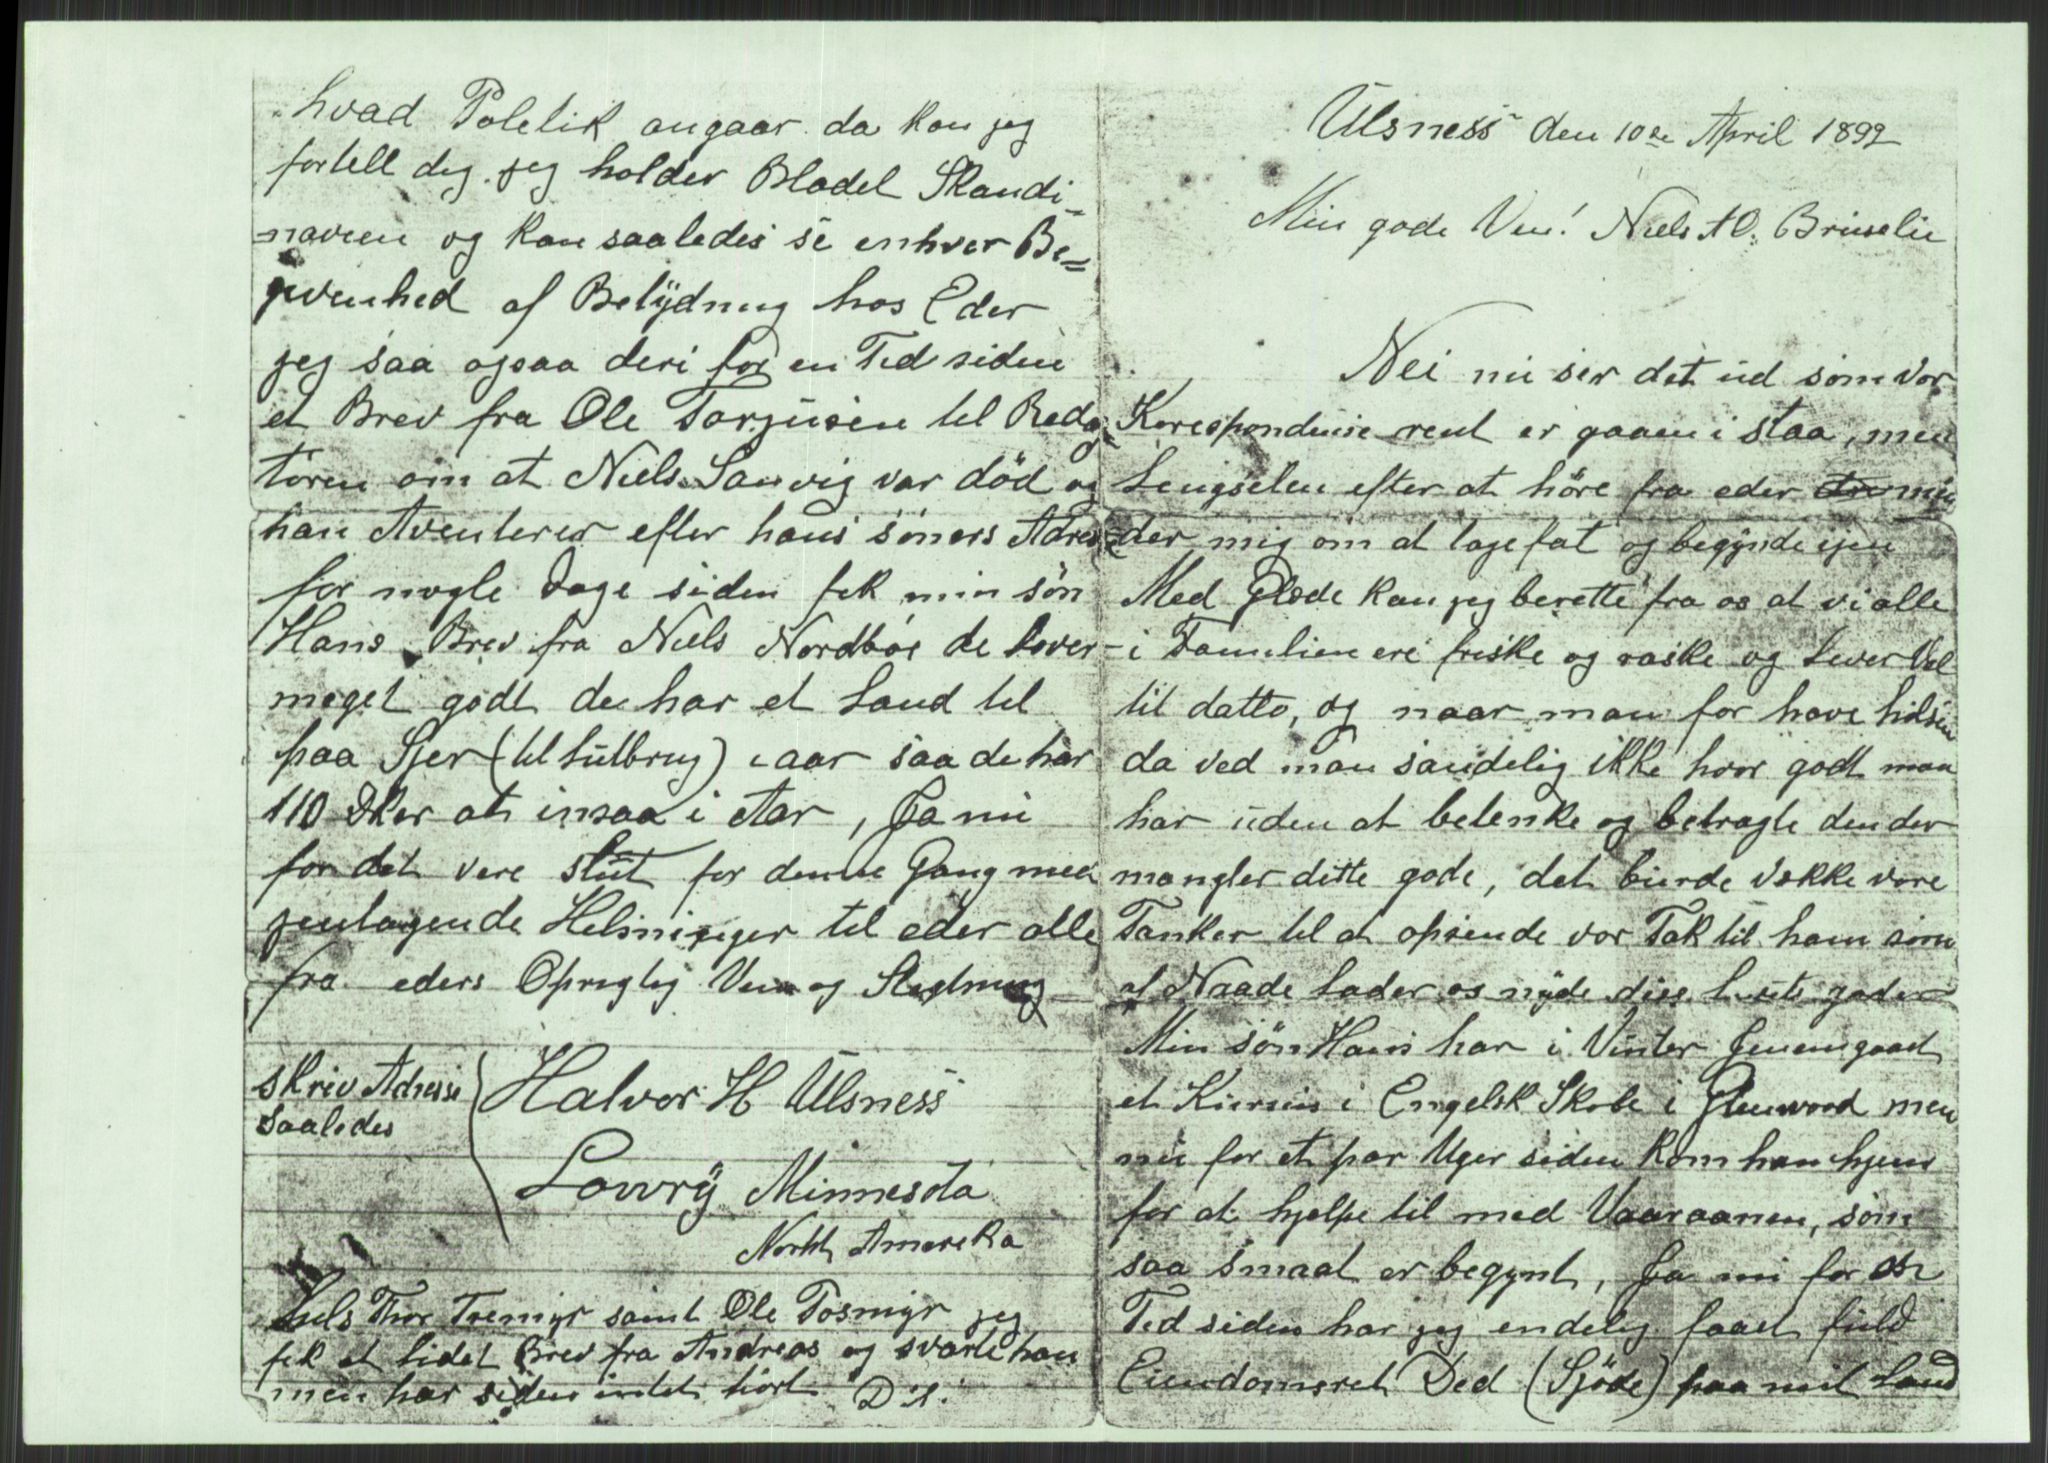 hvad Poletik angaar da kan jeg
fortell dig jeg holder Bladet Skandi-
=naven og kan saaledes se enhver Be=
givenhed af Betydning hos Eder
jeg saa ogsaa deri for en Tid siden
et Brev fra Ole Torjusen til Redag
tøren om at Niels Sanvig var død og
han Aventerer efter hans søners Adres
for nogle Dage siden fik min søn
Hans Brev fra Niels Nordbøe de lever
meget godt de har et Land til
paa Sjer (til lutbrug) i aar saa de har
110 Eker at insaa i Aar, Ja nu
for det vere slut for denne Gang med
jentagende Helsninger til eder alle
fra eders Oprigtig Ven og Slegtning
Skriv Adresse
Saaledes
Halvor H Ulsness
Lowry Minnesota
North Amereka
Hels Thor Tvemyr samt Ole Tosmyr jeg
fik et lidet Brev fra Andreas og svarte han
men har siden intet hørt D.s.
Ulsness den 10de April 1892
Min gode Ven! Niels A O. Bruselie
Nei nu ser det ud som vor
Korespondense rent er gaaen i staa, men
Lengselen efter at høre fra eder min
der mig om at tage fat og begynde igen
Med Glæde kan jeg berette fra os at vi alle
i Familien ere friske og raske og Lever Vel
til datto, og naar man for have hilsen
da ved man sandelig ikke hvor godt man
har uden at betenke og betragte den der
mangler dette gode, det burde vække vore
Tanker til at opsende vor Tak til ham som
af Naade Lader os nyde disse goder
Min søn Hans har i Vinter Jenemgaaet
et Kursus i Engelsk Skole i Glenwood men
nu for et par Uger siden kom han hjem
for at hjelpe til med Vaaraanen, som
saa smaat er begynt, Ja nu for en
Tid siden har jeg endelig faaet fuld
Eiendomsret Ded (Sjøde) paa mit Land